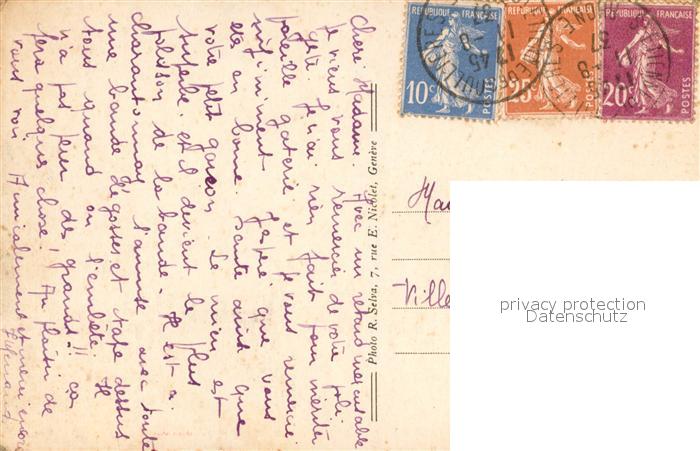 Chère Madame. Avec un retard inexcusable
je viens vous remercier de votre joli
geste. Je n'ai rien fait pour mériter
pareille gaterie et je vous remercie
infiniment. J'espère que vous
ête en bonne santé ainsi que
votre petit garçon. Le mien est
superbe et il devient le plus
polisson de la bande. Il est à
charantonnay s'amuse avec toute
une bande de gosses et tape dessus
tous quand on l'embête. Il
n'a pas peur des grands!! ça
sera quelque chose! Au plaisir de
vous voir Amicalement et merci encore
Photo R. Selva, 7, rue E. Nicolet, Genève
REPUBLIQUE FRANÇAISE
10c
POSTES
REPUBLIQUE FRANÇAISE
25c
POSTES
REPUBLIQUE FRANÇAISE
20c
POSTES
17 45
8
37
Ville
privacy protection
Datenschutz